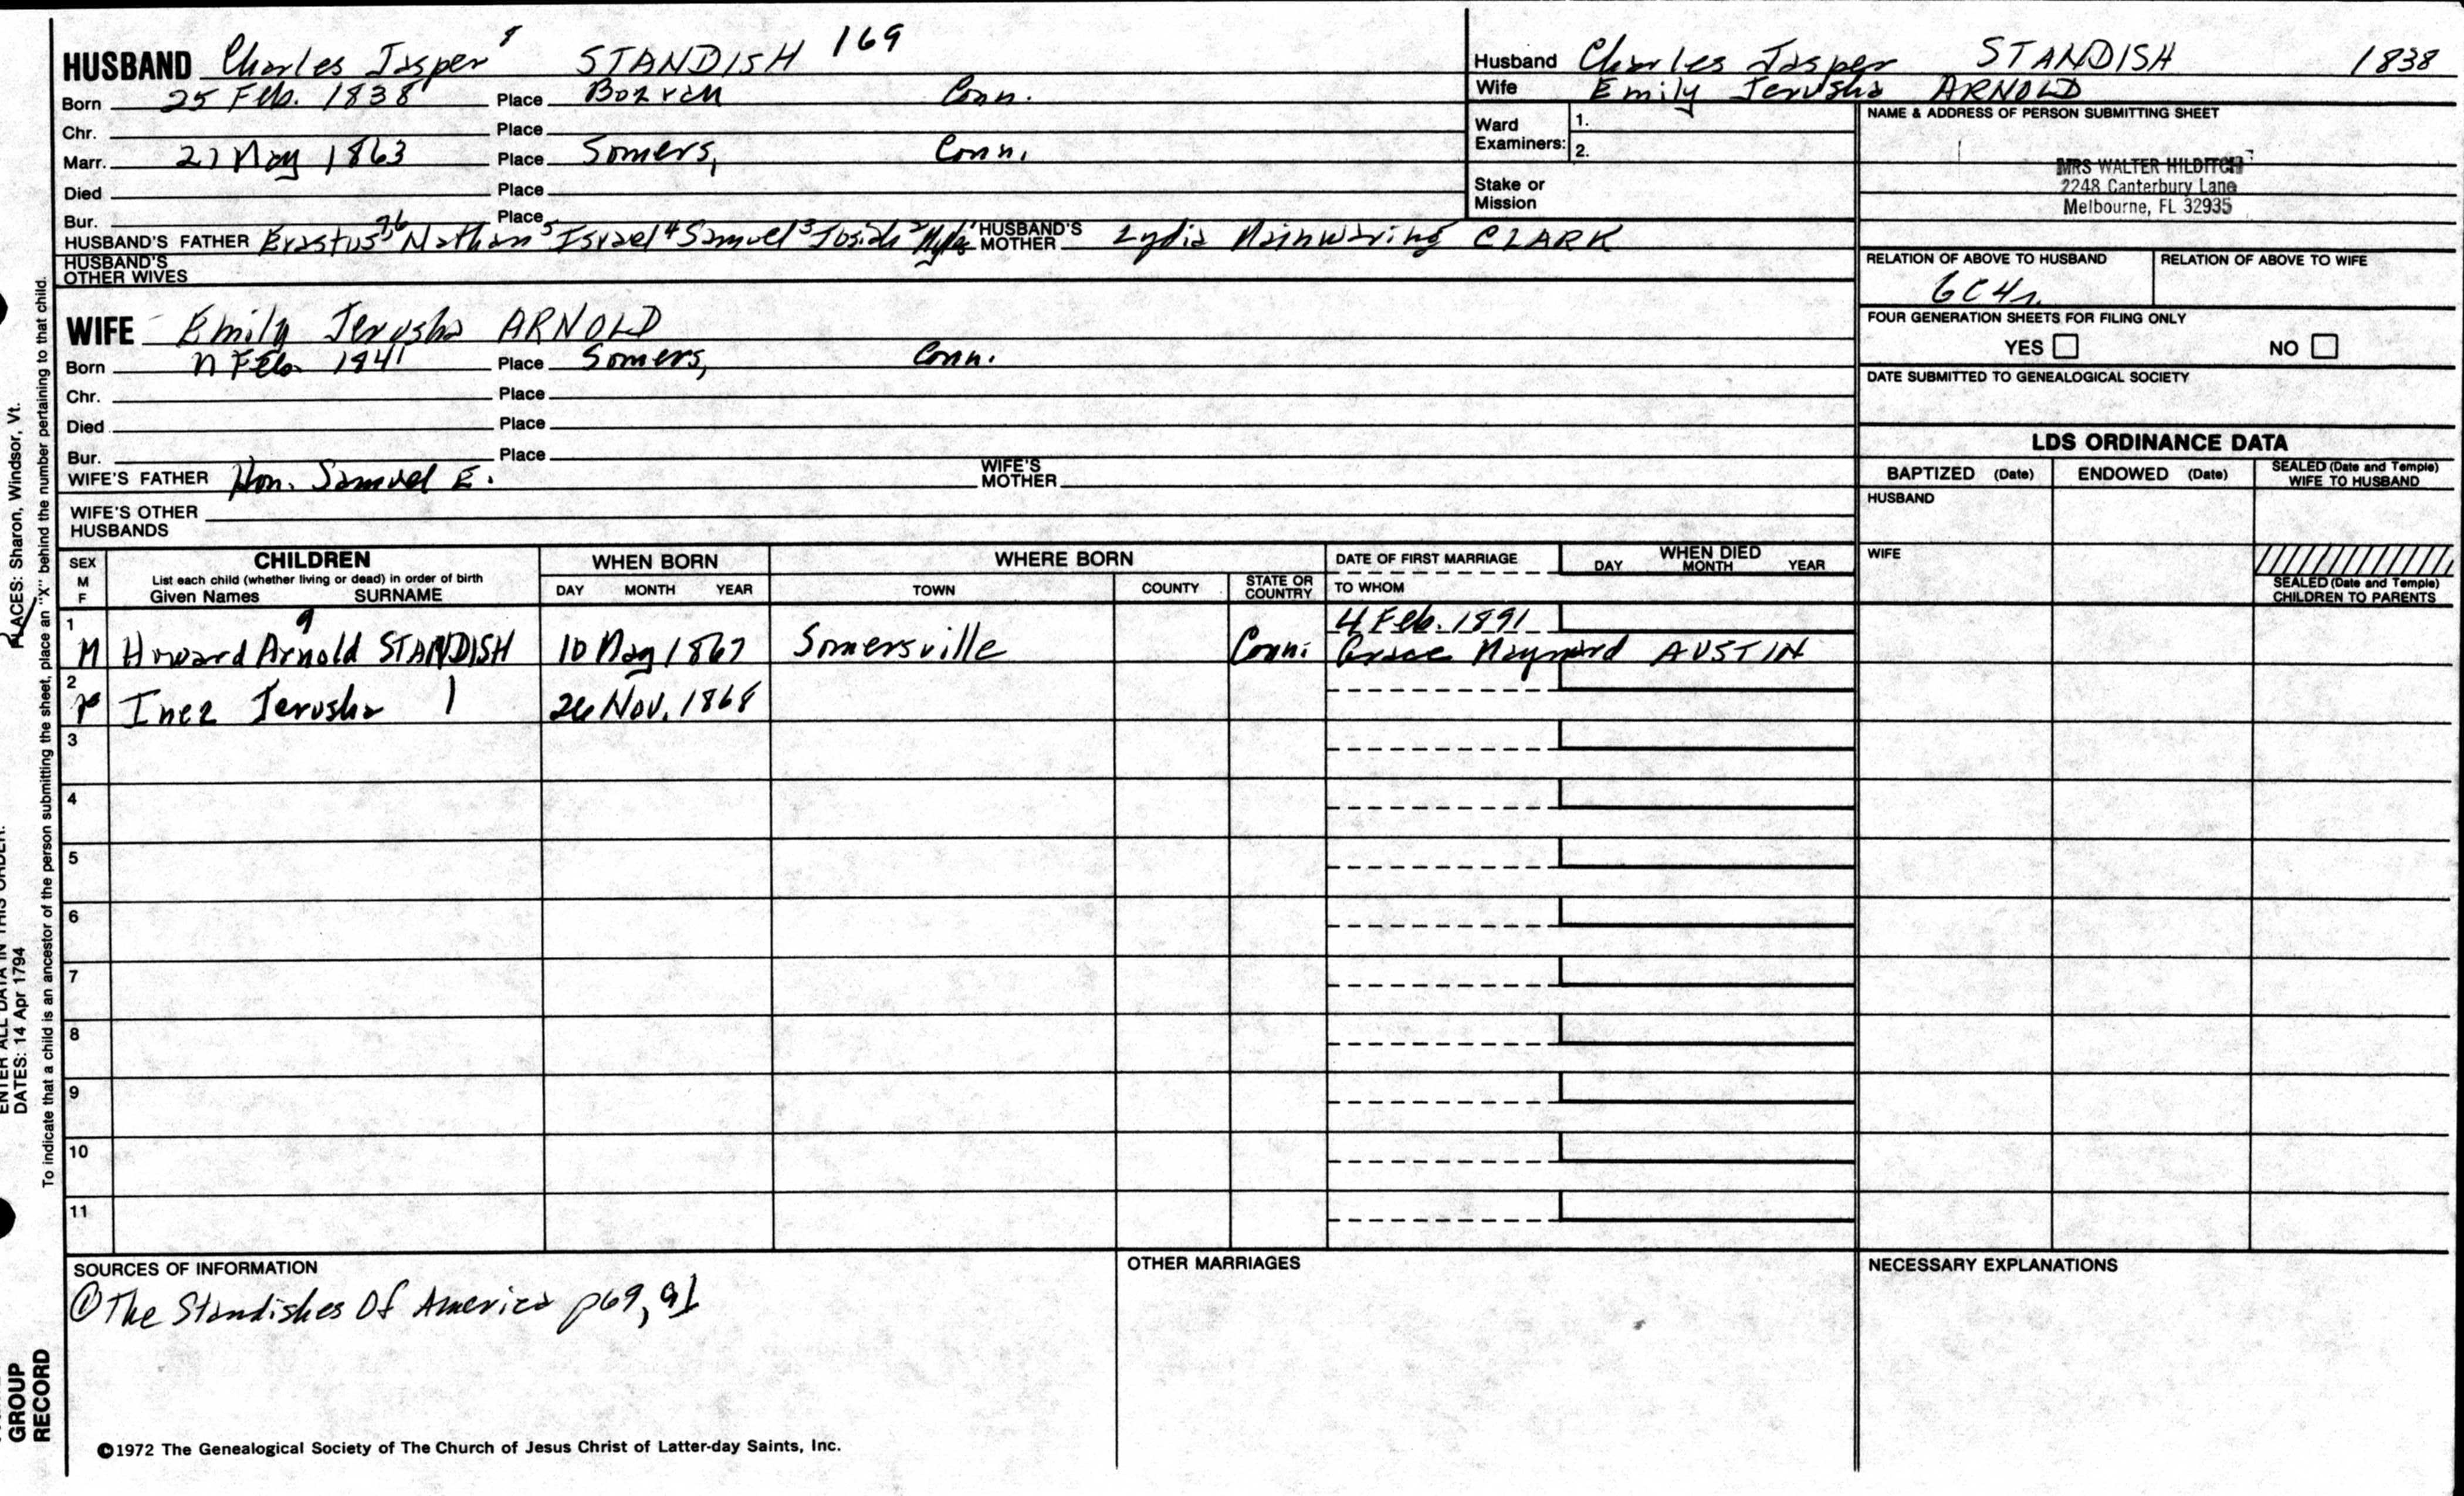 HUSBAND Charles Jasper 8 STANDISH 169
Born 25 Feb. 1838 Place Bozrah Conn.
Chr. Place
Marr. May 1863 Place Somers, Conn.
Died Place
Bur. Place
HUSBAND'S FATHER Erastus Nathan 5 Israel 4 Samuel 3 Josiah 2 Myles 1 HUSBAND'S MOTHER Lydia Mainwaring CLARK
HUSBAND'S OTHER WIVES
WIFE Emily Jerusha ARNOLD
Born Feb. 1841 Place Somers, Conn.
Chr. Place
Died Place
Bur. Place
WIFE'S FATHER Hon. Samuel E. WIFE'S MOTHER
WIFE'S OTHER HUSBANDS
Husband Charles Jasper STANDISH 1838
Wife Emily Jerusha ARNOLD
Ward Examiners: 1.
2.
Stake or Mission
NAME & ADDRESS OF PERSON SUBMITTING SHEET
MRS WALTER HILDITCH
2248 Canterbury Lane
Melbourne, FL 32935
RELATION OF ABOVE TO HUSBAND RELATION OF ABOVE TO WIFE
6C4r
FOUR GENERATION SHEETS FOR FILING ONLY
YES NO
DATE SUBMITTED TO GENEALOGICAL SOCIETY
LDS ORDINANCE DATA
BAPTIZED (Date) ENDOWED (Date) SEALED (Date and Temple) WIFE TO HUSBAND
HUSBAND
WIFE
SEALED (Date and Temple) CHILDREN TO PARENTS
SEX M F
CHILDREN
List each child (whether living or dead) in order of birth
Given Names SURNAME
WHEN BORN
DAY MONTH YEAR
WHERE BORN
TOWN COUNTY STATE OR COUNTRY
DATE OF FIRST MARRIAGE
TO WHOM
WHEN DIED
DAY MONTH YEAR
1 9 4 Feb. 1891
M Howard Arnold STANDISH 10 May 1867 Somersville Conn. Grace Maynard AUSTIN
2
F Inez Jerusha 26 Nov. 1868
3
4
5
6
7
8
9
10
11
SOURCES OF INFORMATION
① The Standishes Of America p69, 91
OTHER MARRIAGES
NECESSARY EXPLANATIONS
©1972 The Genealogical Society of The Church of Jesus Christ of Latter-day Saints, Inc.
To indicate that a child is an ancestor of the person submitting the sheet, place an "X" behind the number pertaining to that child.
PLACES: Sharon, Windsor, Vt.
ENTER ALL DATA IN THIS ORDER:
DATES: 14 Apr 1794
GROUP
RECORD